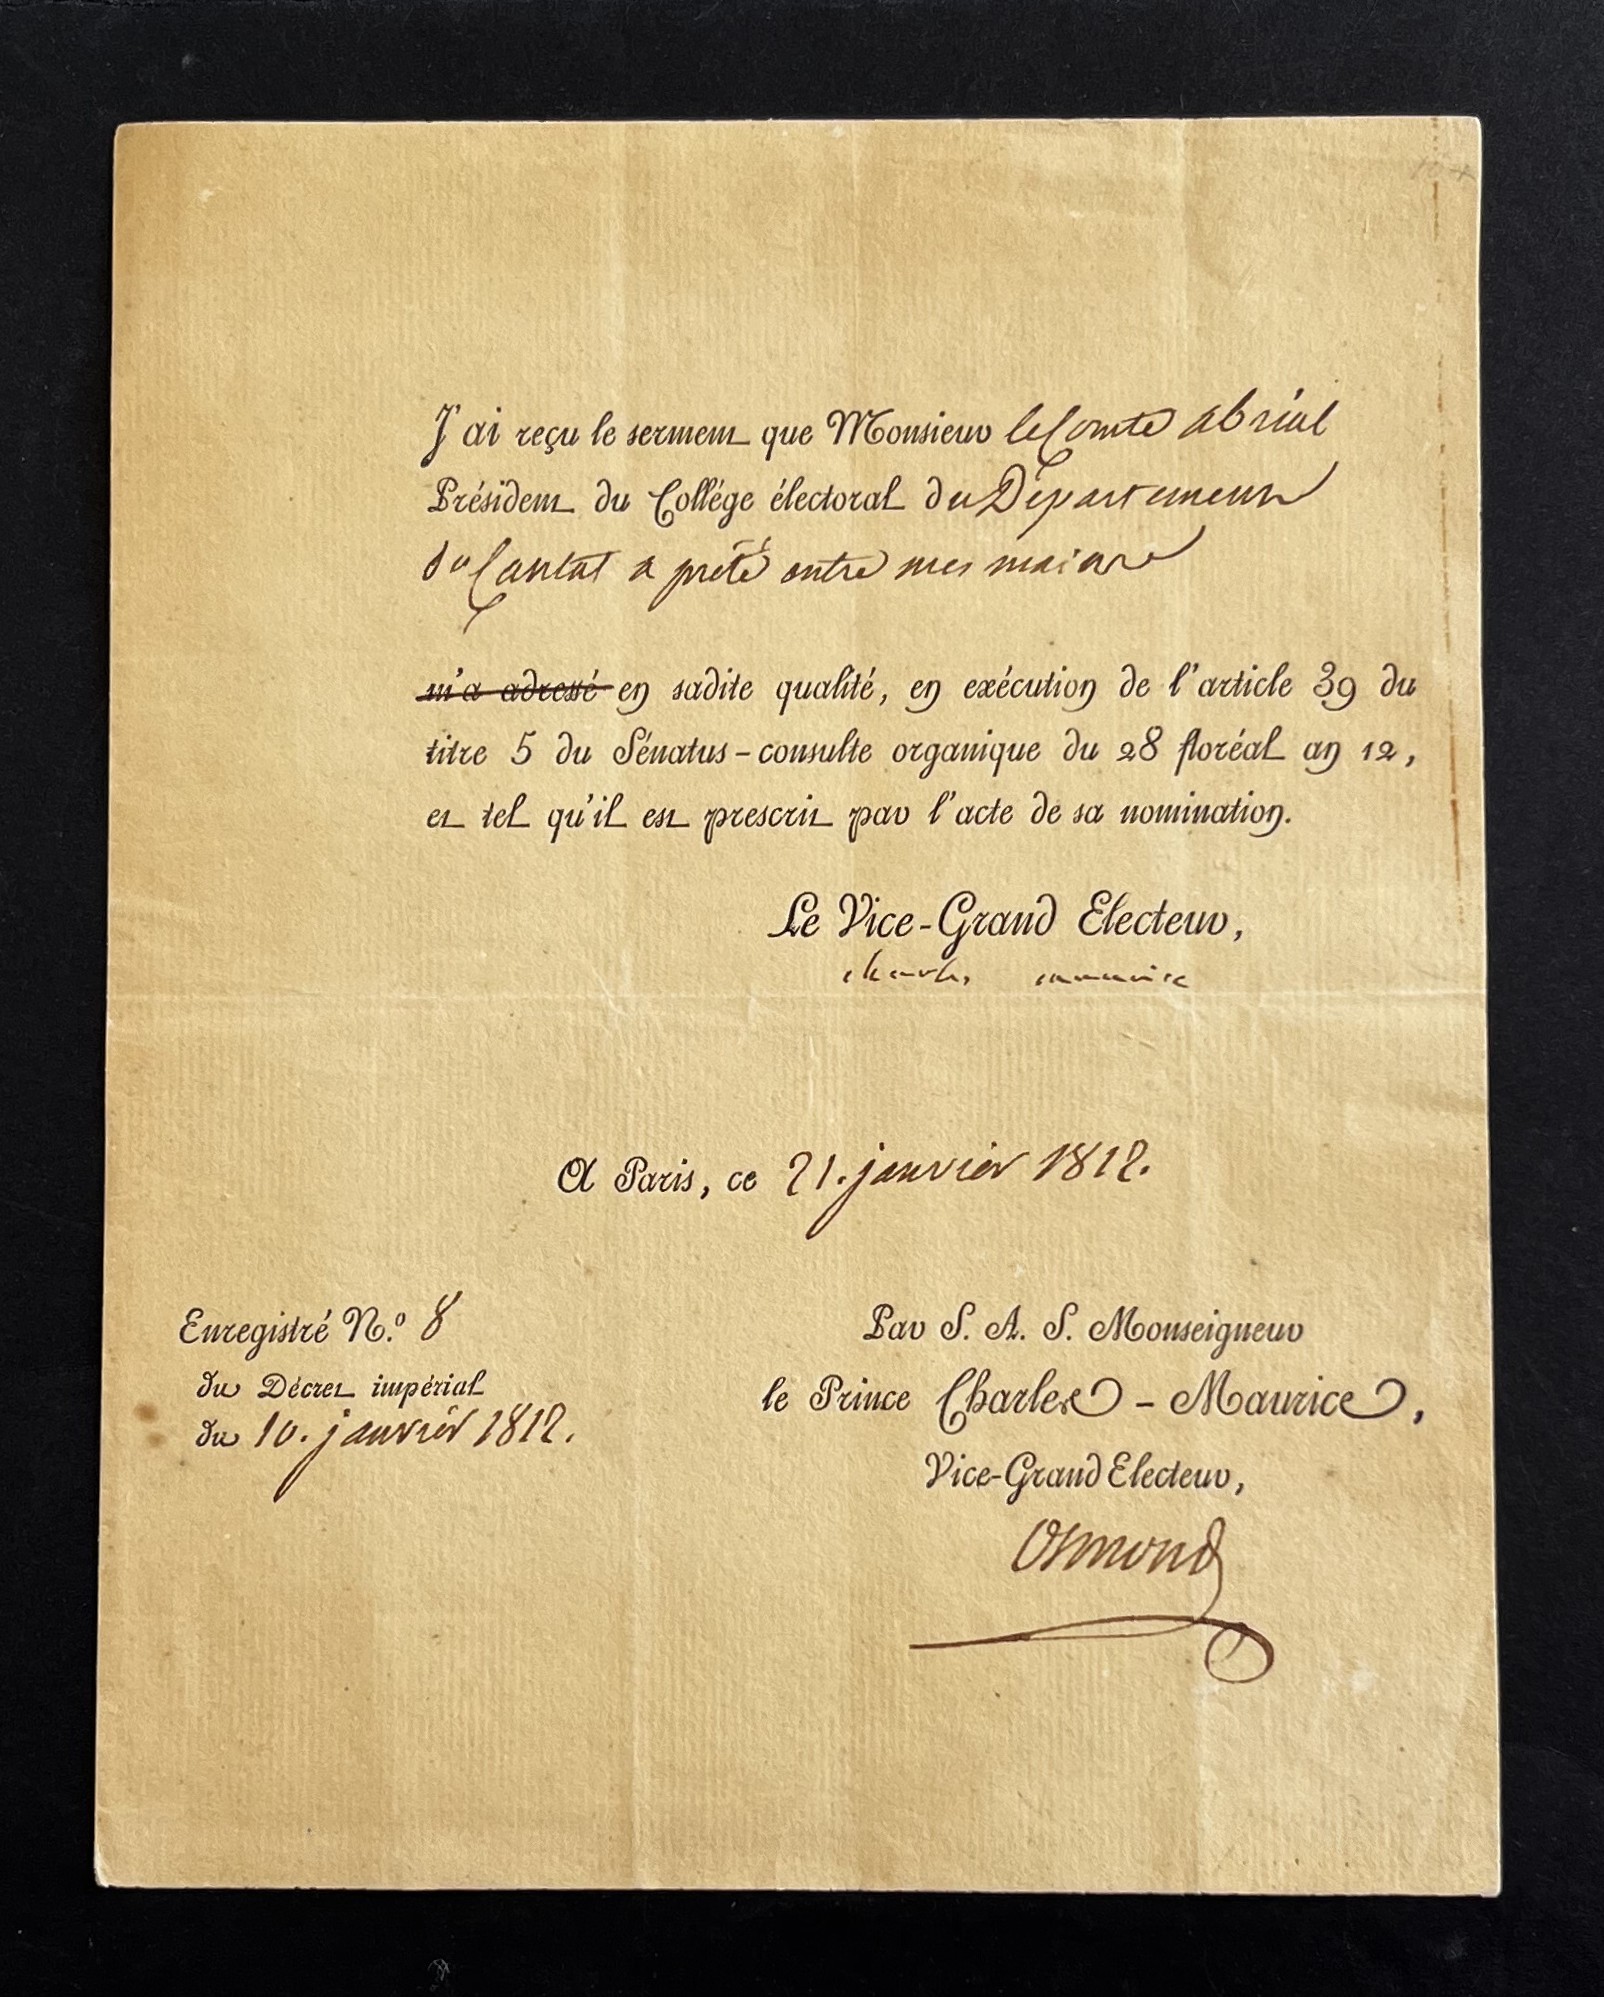 J'ai reçu le serment que Monsieur le Comte abrial
Président du Collége électoral du Département
du Cantal a prété entre mes mains
m'a adressé en sadite qualité, en exécution de l'article 39 du
titre 5 du Sénatus-consulte organique du 28 floréal an 12,
et tel qu'il est prescrit par l'acte de sa nomination.
Le Vice-Grand Electeur,
charles maurice
A Paris, ce 21. janvier 1812.
Enregistré N.º 8
du Décret impérial
du 10. janvier 1812.
Par S. A. S. Monseigneur
le Prince Charles-Maurice,
Vice-Grand Electeur,
Osmond